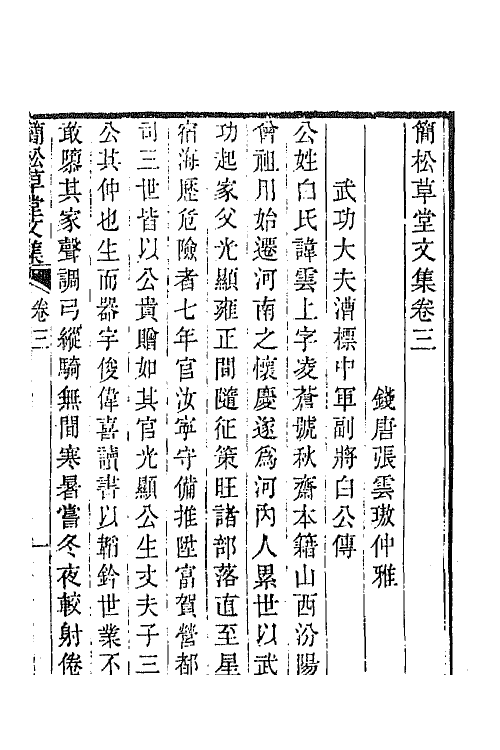 簡松草堂文集卷三
錢唐張雲璈仲雅
武功大夫漕標中軍副將白公傳
公姓白氏諱雲上字凌蒼號秋齋本籍山西汾陽
曾祖用始遷河南之懷慶遂爲河內人累世以武
功起家父光顯雍正間隨征策旺諸部落直至星
宿海歷危險者七年官汝寧守備推陞富賀營都
司三世皆以公貴贈如其官光顯公生丈夫子三
公其仲也生而器宇俊偉喜讀書以韜鈐世業不
敢隳其家聲調弓縱騎無間寒暑嘗冬夜較射倦
簡松草堂文集
卷三
一